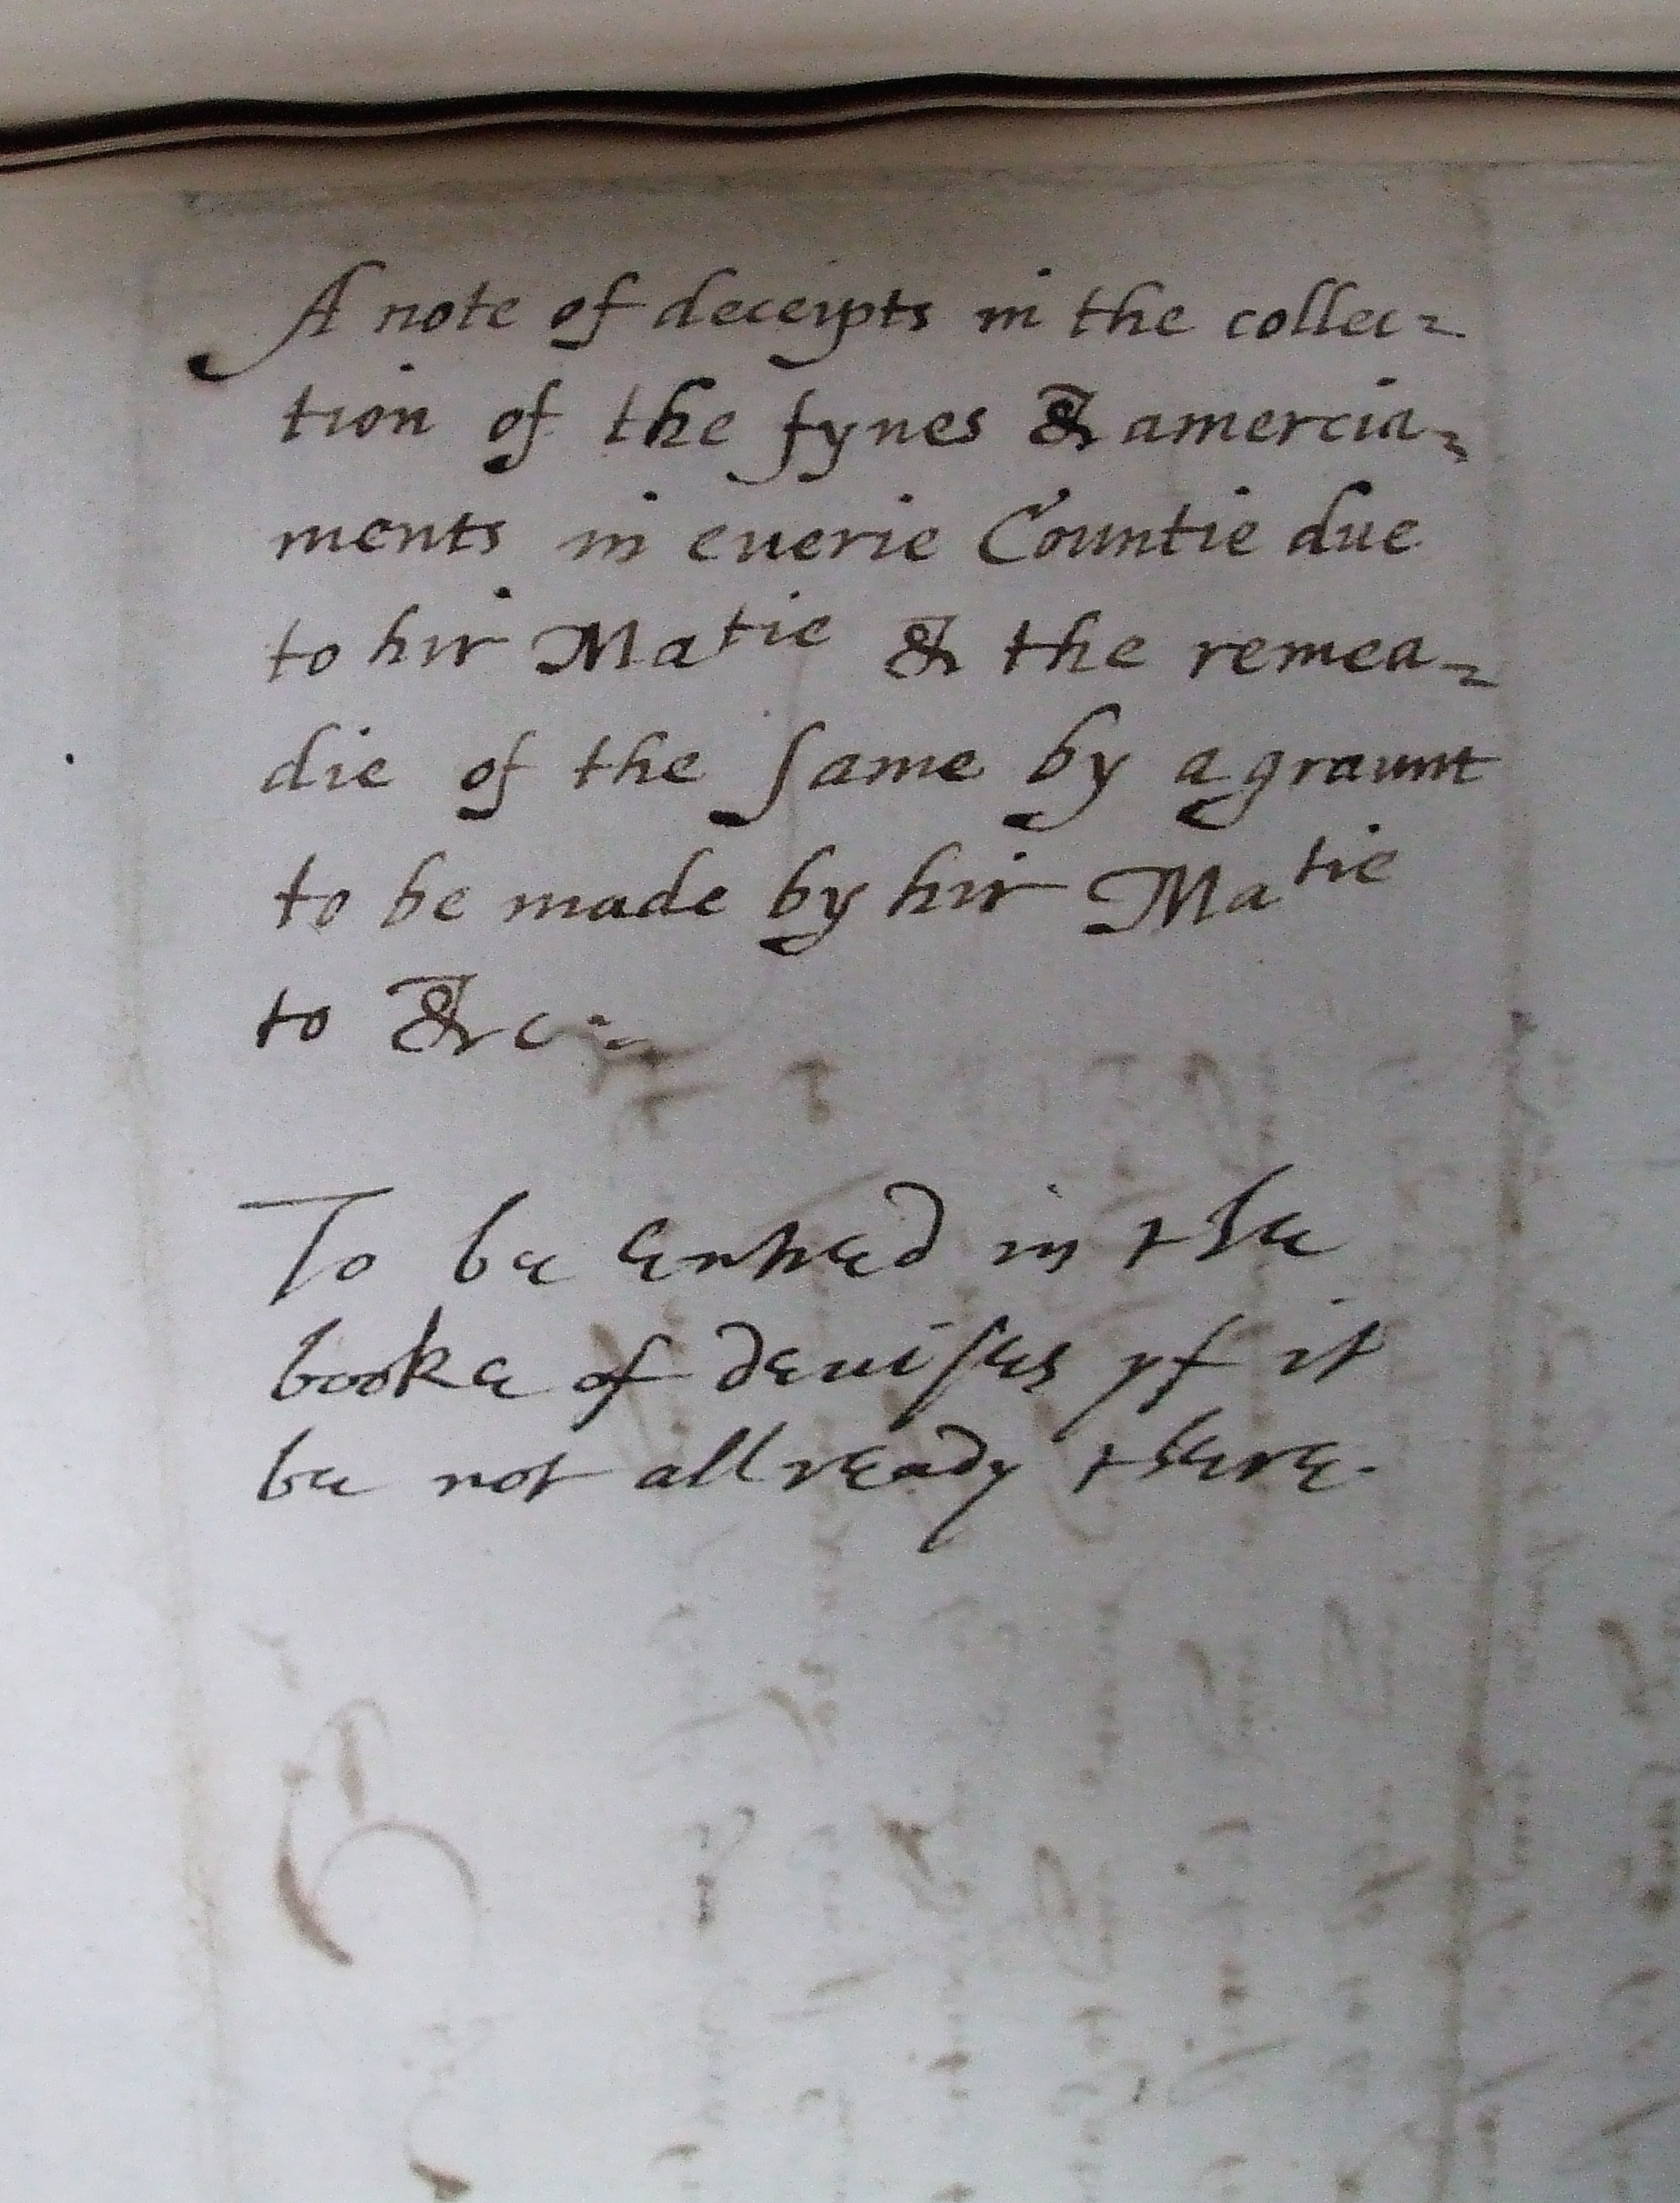 A note of deceipts in the collec=
tion of the fynes & amercia=
ments in euerie Countie due
to hir Matie & the remea=
die of the same by a graunt
to be made by hir Matie
to &c:-
To be entred in the
booke of deuises yf it
be not allready there.